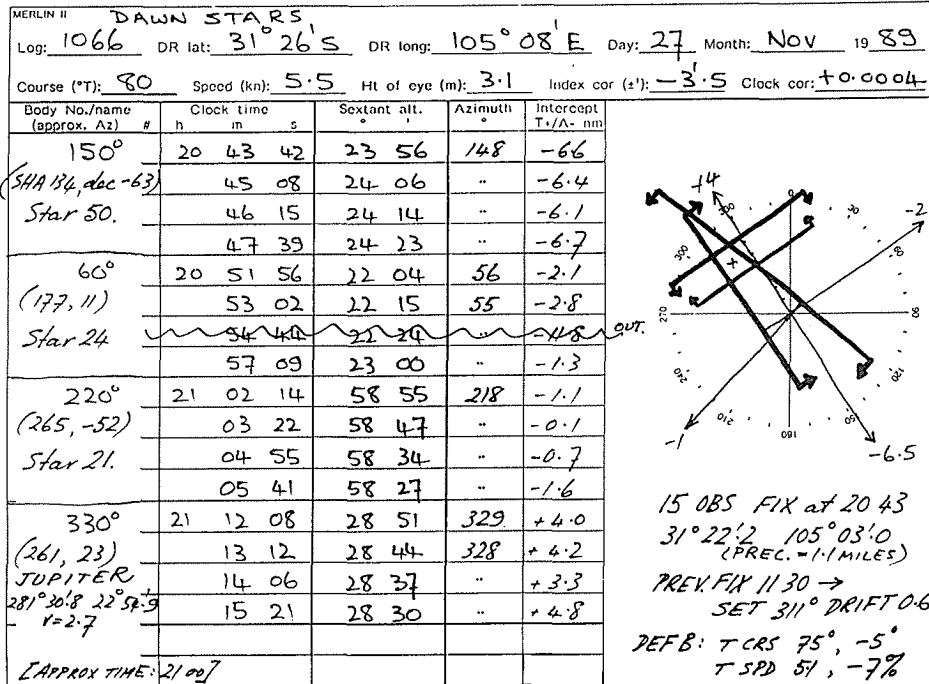 MERLIN II DAWN STARS
Log: 1066 DR lat: 31° 26' S DR long: 105° 08' E Day: 27 Month: Nov 19 89
Course (°T): 80 Speed (kn): 5.5 Ht of eye (m): 3.1 Index cor (±'): -3'.5 Clock cor: +0.0004
Body No./name (approx. Az) # Clock time h m s Sextant alt. ° ' Azimuth ° Intercept T+/A- nm
150° 20 43 42 23 56 148 -6.6
(SHA 134, dec -63) 45 08 24 06 " -6.4
Star 50. 46 15 24 14 " -6.1
47 39 24 23 " -6.7
60° 20 51 56 22 04 56 -2.1
(177, 11) 53 02 22 15 55 -2.8
Star 24 54 44 22 24 " -11.8 OUT.
57 09 23 00 " -1.3
220° 21 02 14 58 55 218 -1.1
(265, -52) 03 22 58 47 " -0.1
Star 21. 04 55 58 34 " -0.7
05 41 58 27 " -1.6
330° 21 12 08 28 51 329 +4.0
(261, 23) 13 12 28 44 328 +4.2
JUPITER 14 06 28 37 " +3.3
281° 30'.8 22° 54'.9 15 21 28 30 " +4.8
V=2.7
[APPROX TIME: 21 00]
+4
-2
0
30
60
90
120
150
180
210
240
270
300
330
-1
-6.5
15 OBS FIX at 20 43
31° 22'.2 105° 03'.0
(PREC. = 1.1 MILES)
PREV. FIX 11 30 →
SET 311° DRIFT 0.6
DEF B: T CRS 75°, -5°
T SPD 51, -7%